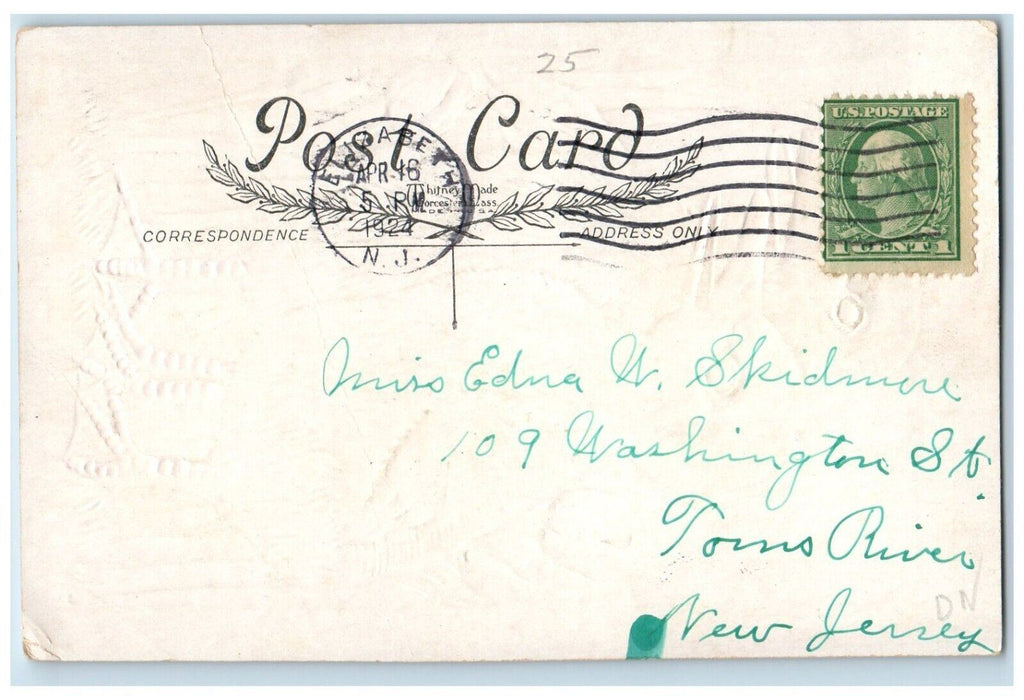 25
Post Card
Whitney Made
Worcester Mass
MADE IN U.S.A.
ELIZABETH
APR 16
5 PM
1924
N.J.
U.S. POSTAGE
1 CENT 1
CORRESPONDENCE
ADDRESS ONLY
Miss Edna W. Skidmore
109 Washington St.
Toms River
New Jersey
DN